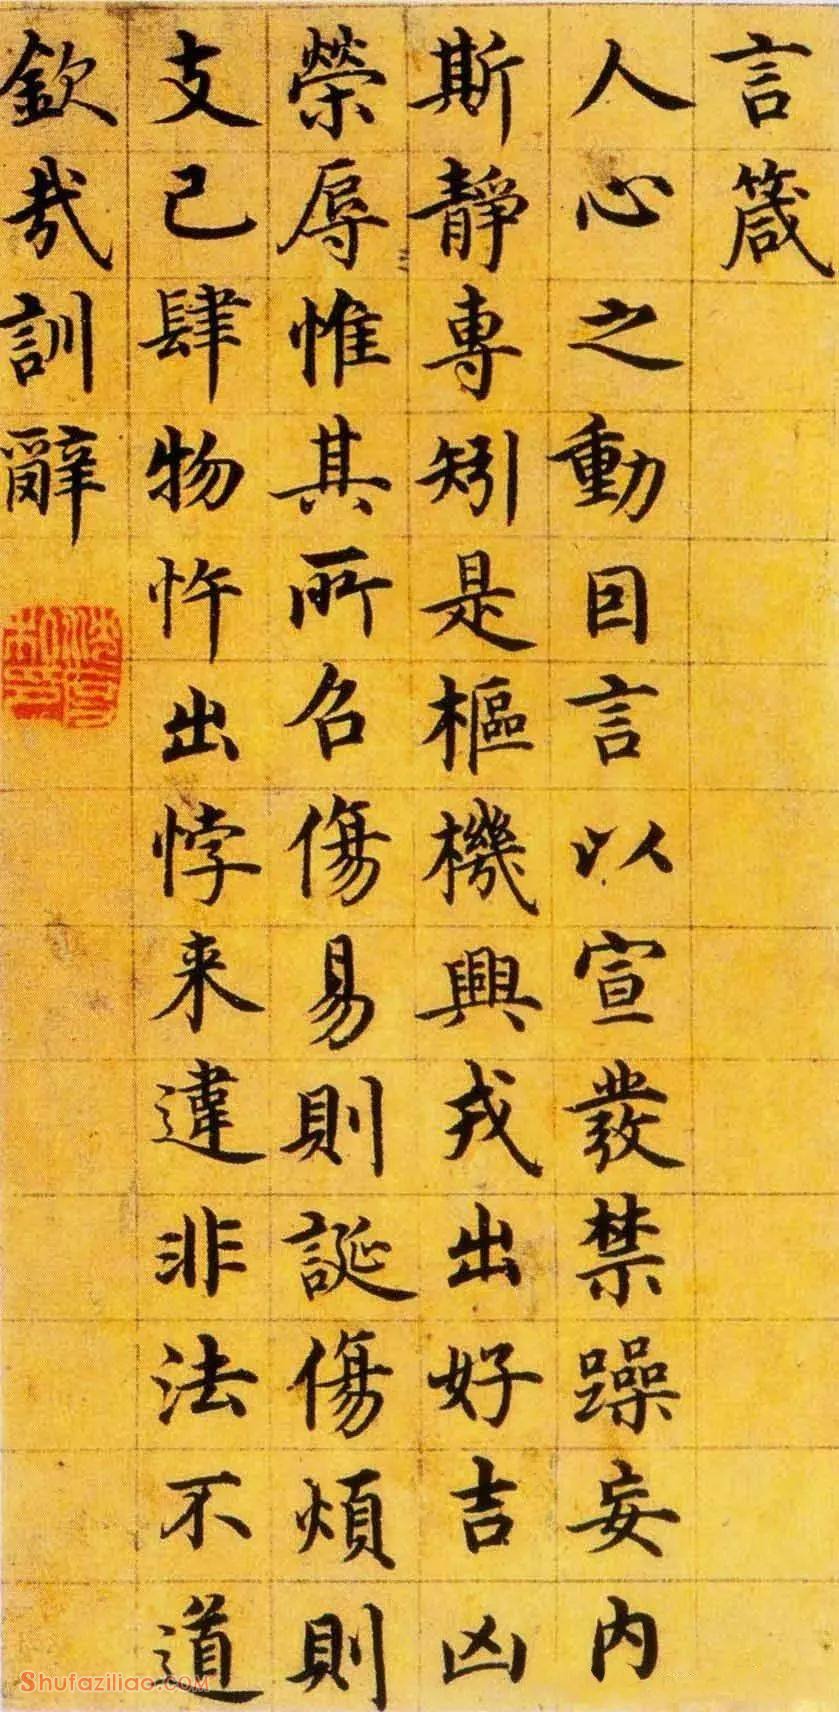 言箴
人心之動因言以宣發禁躁妄内
斯靜專矧是樞機興戎出好吉凶
榮辱惟其所召傷易則誕傷煩則
支己肆物忤出悖来違非法不道
欽哉訓辭
Shufaziliao.com